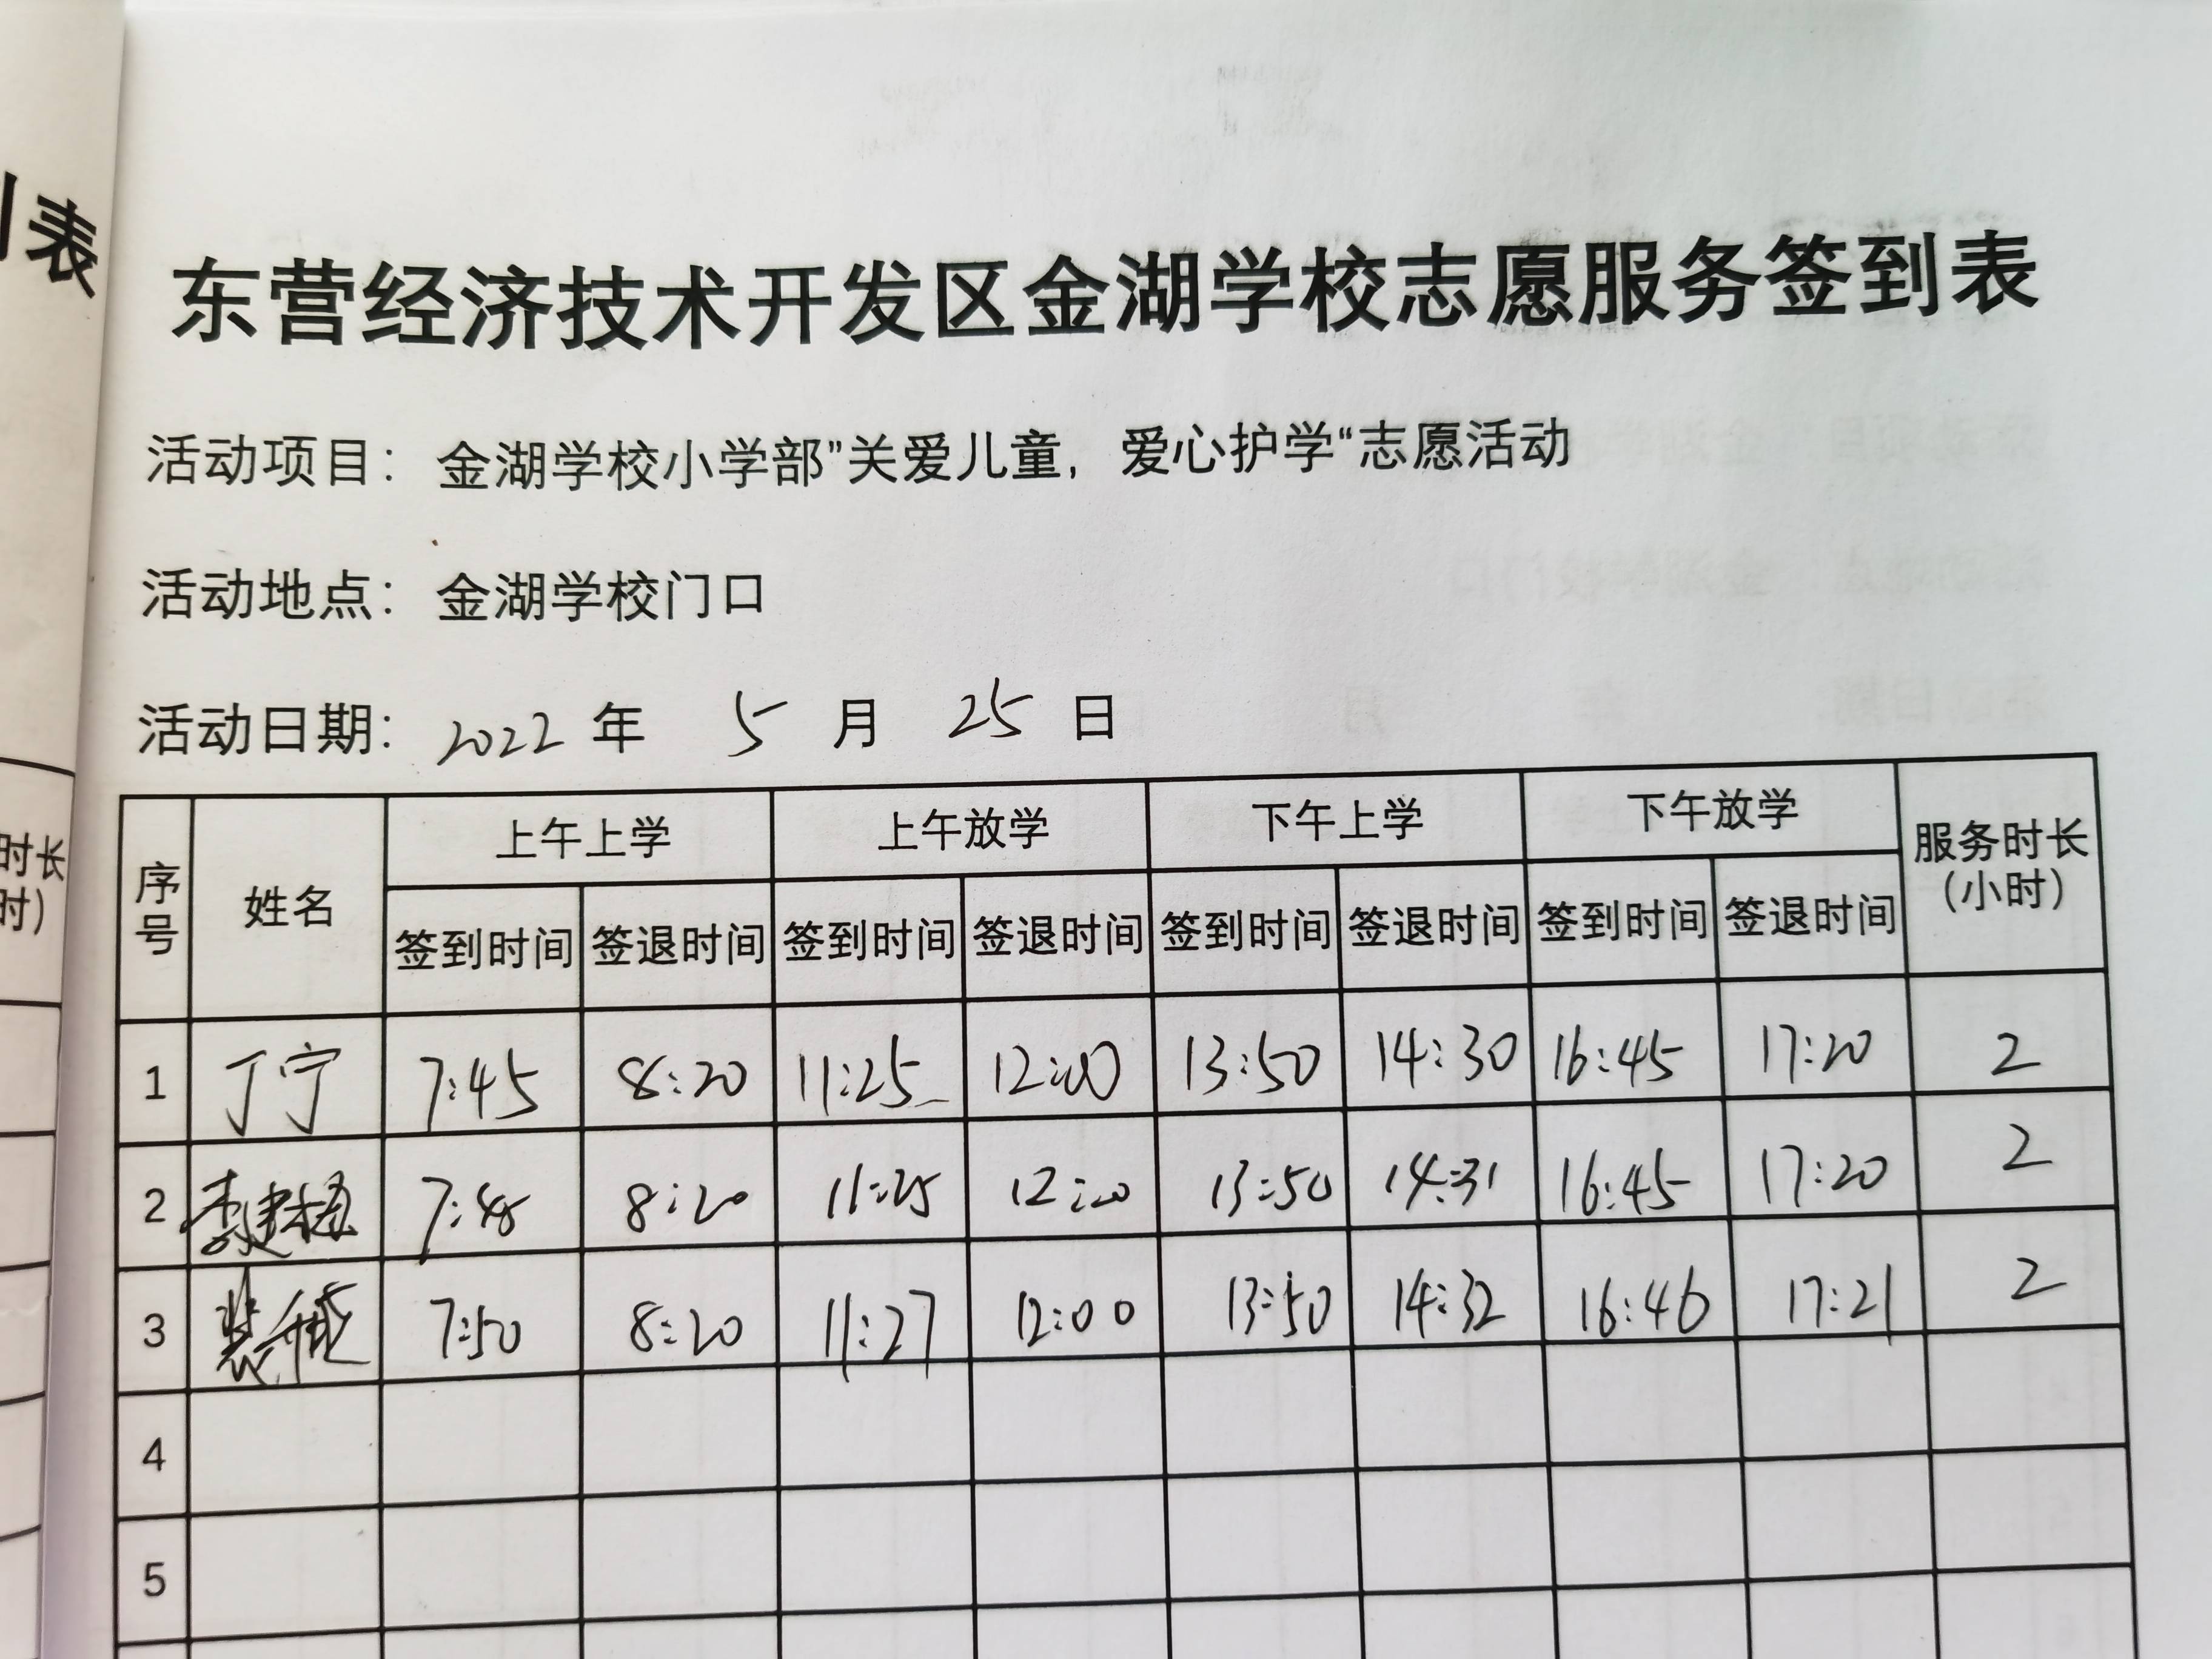 表
东营经济技术开发区金湖学校志愿服务签到表
活动项目：金湖学校小学部”关爱儿童，爱心护学“志愿活动
活动地点：金湖学校门口
活动日期：2022 年 5 月 25 日
时长
时）
序号 姓名 上午上学 上午放学 下午上学 下午放学 服务时长（小时）
签到时间 签退时间 签到时间 签退时间 签到时间 签退时间 签到时间 签退时间
1 丁宁 7:45 8:20 11:25 12:00 13:50 14:30 16:45 17:20 2
2 8:20 11:25 13:50 14:31 16:45 17:20 2
3 7:50 8:20 11:27 12:00 13:50 14:32 16:46 17:21 2
4
5